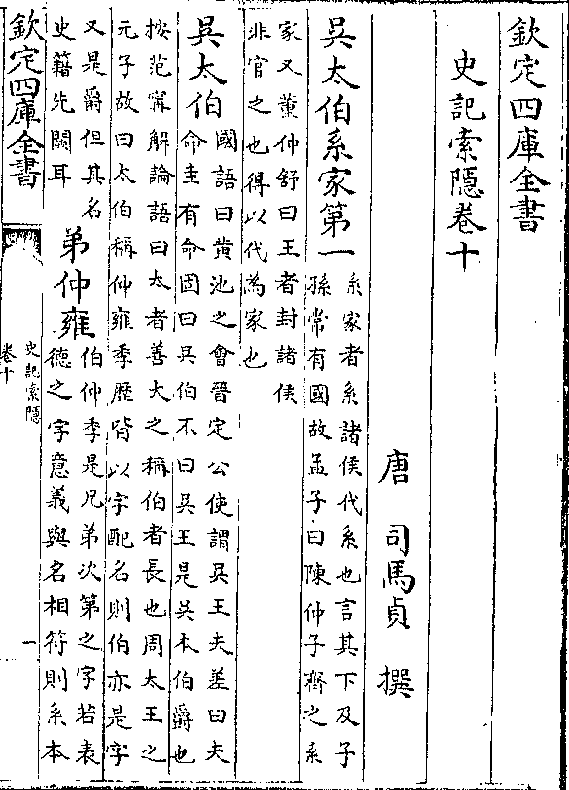 欽定四庫全書
史記索隱卷十
唐 司馬貞 撰
吳太伯系家第一
系家者系諸侯代系也言其下及子
孫常有國故孟子曰陳仲子齊之系
家又董仲舒曰王者封諸侯
非官之也得以代為家也
吳太伯
國語曰黄池之會晉定公使謂吳王夫差曰夫
命圭有命固曰吳伯不曰吳王是吳本伯爵也
按范甯解論語曰太者善大之稱伯者長也周太王之
元子故曰太伯稱仲雍季歴皆以字配名則伯亦是字
又是爵但其名
史籍先闕耳
弟仲雍
伯仲季是兄弟次第之字若表
德之字意義與名相符則系本
欽定四庫全書
史記索隱
卷十
一